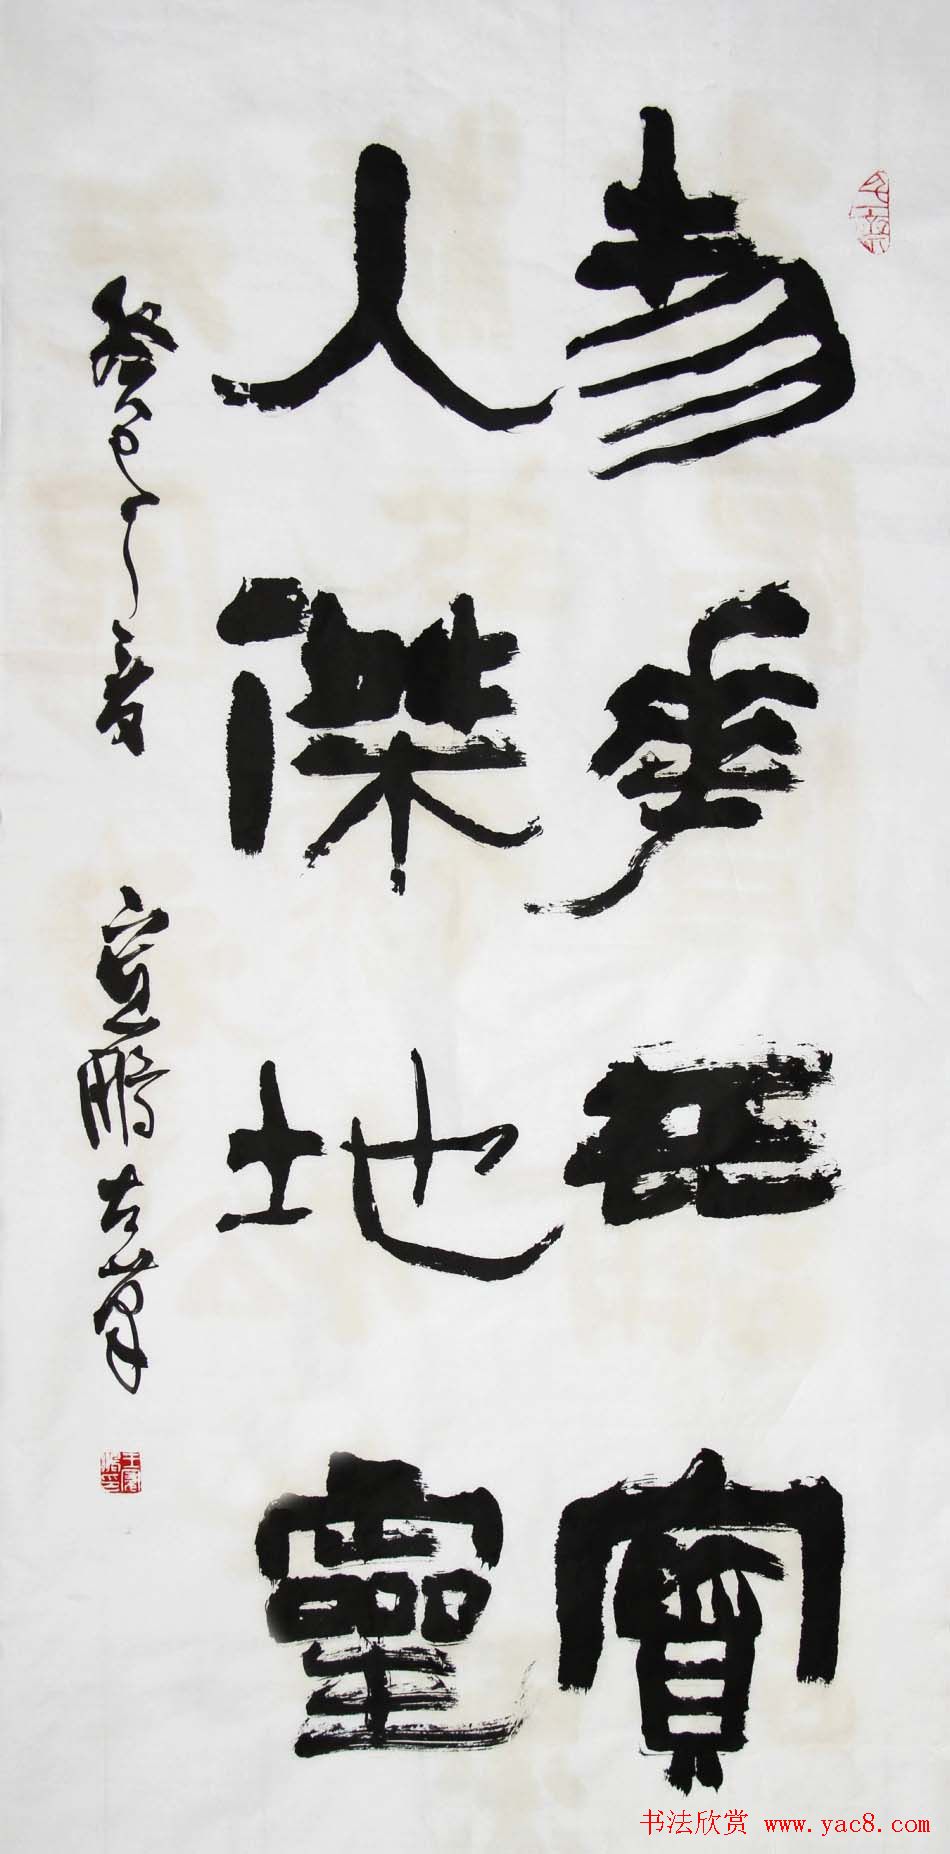 物華天寶
人傑地靈
癸巳年春 宣鵬左筆
书法欣赏 www.yac8.com